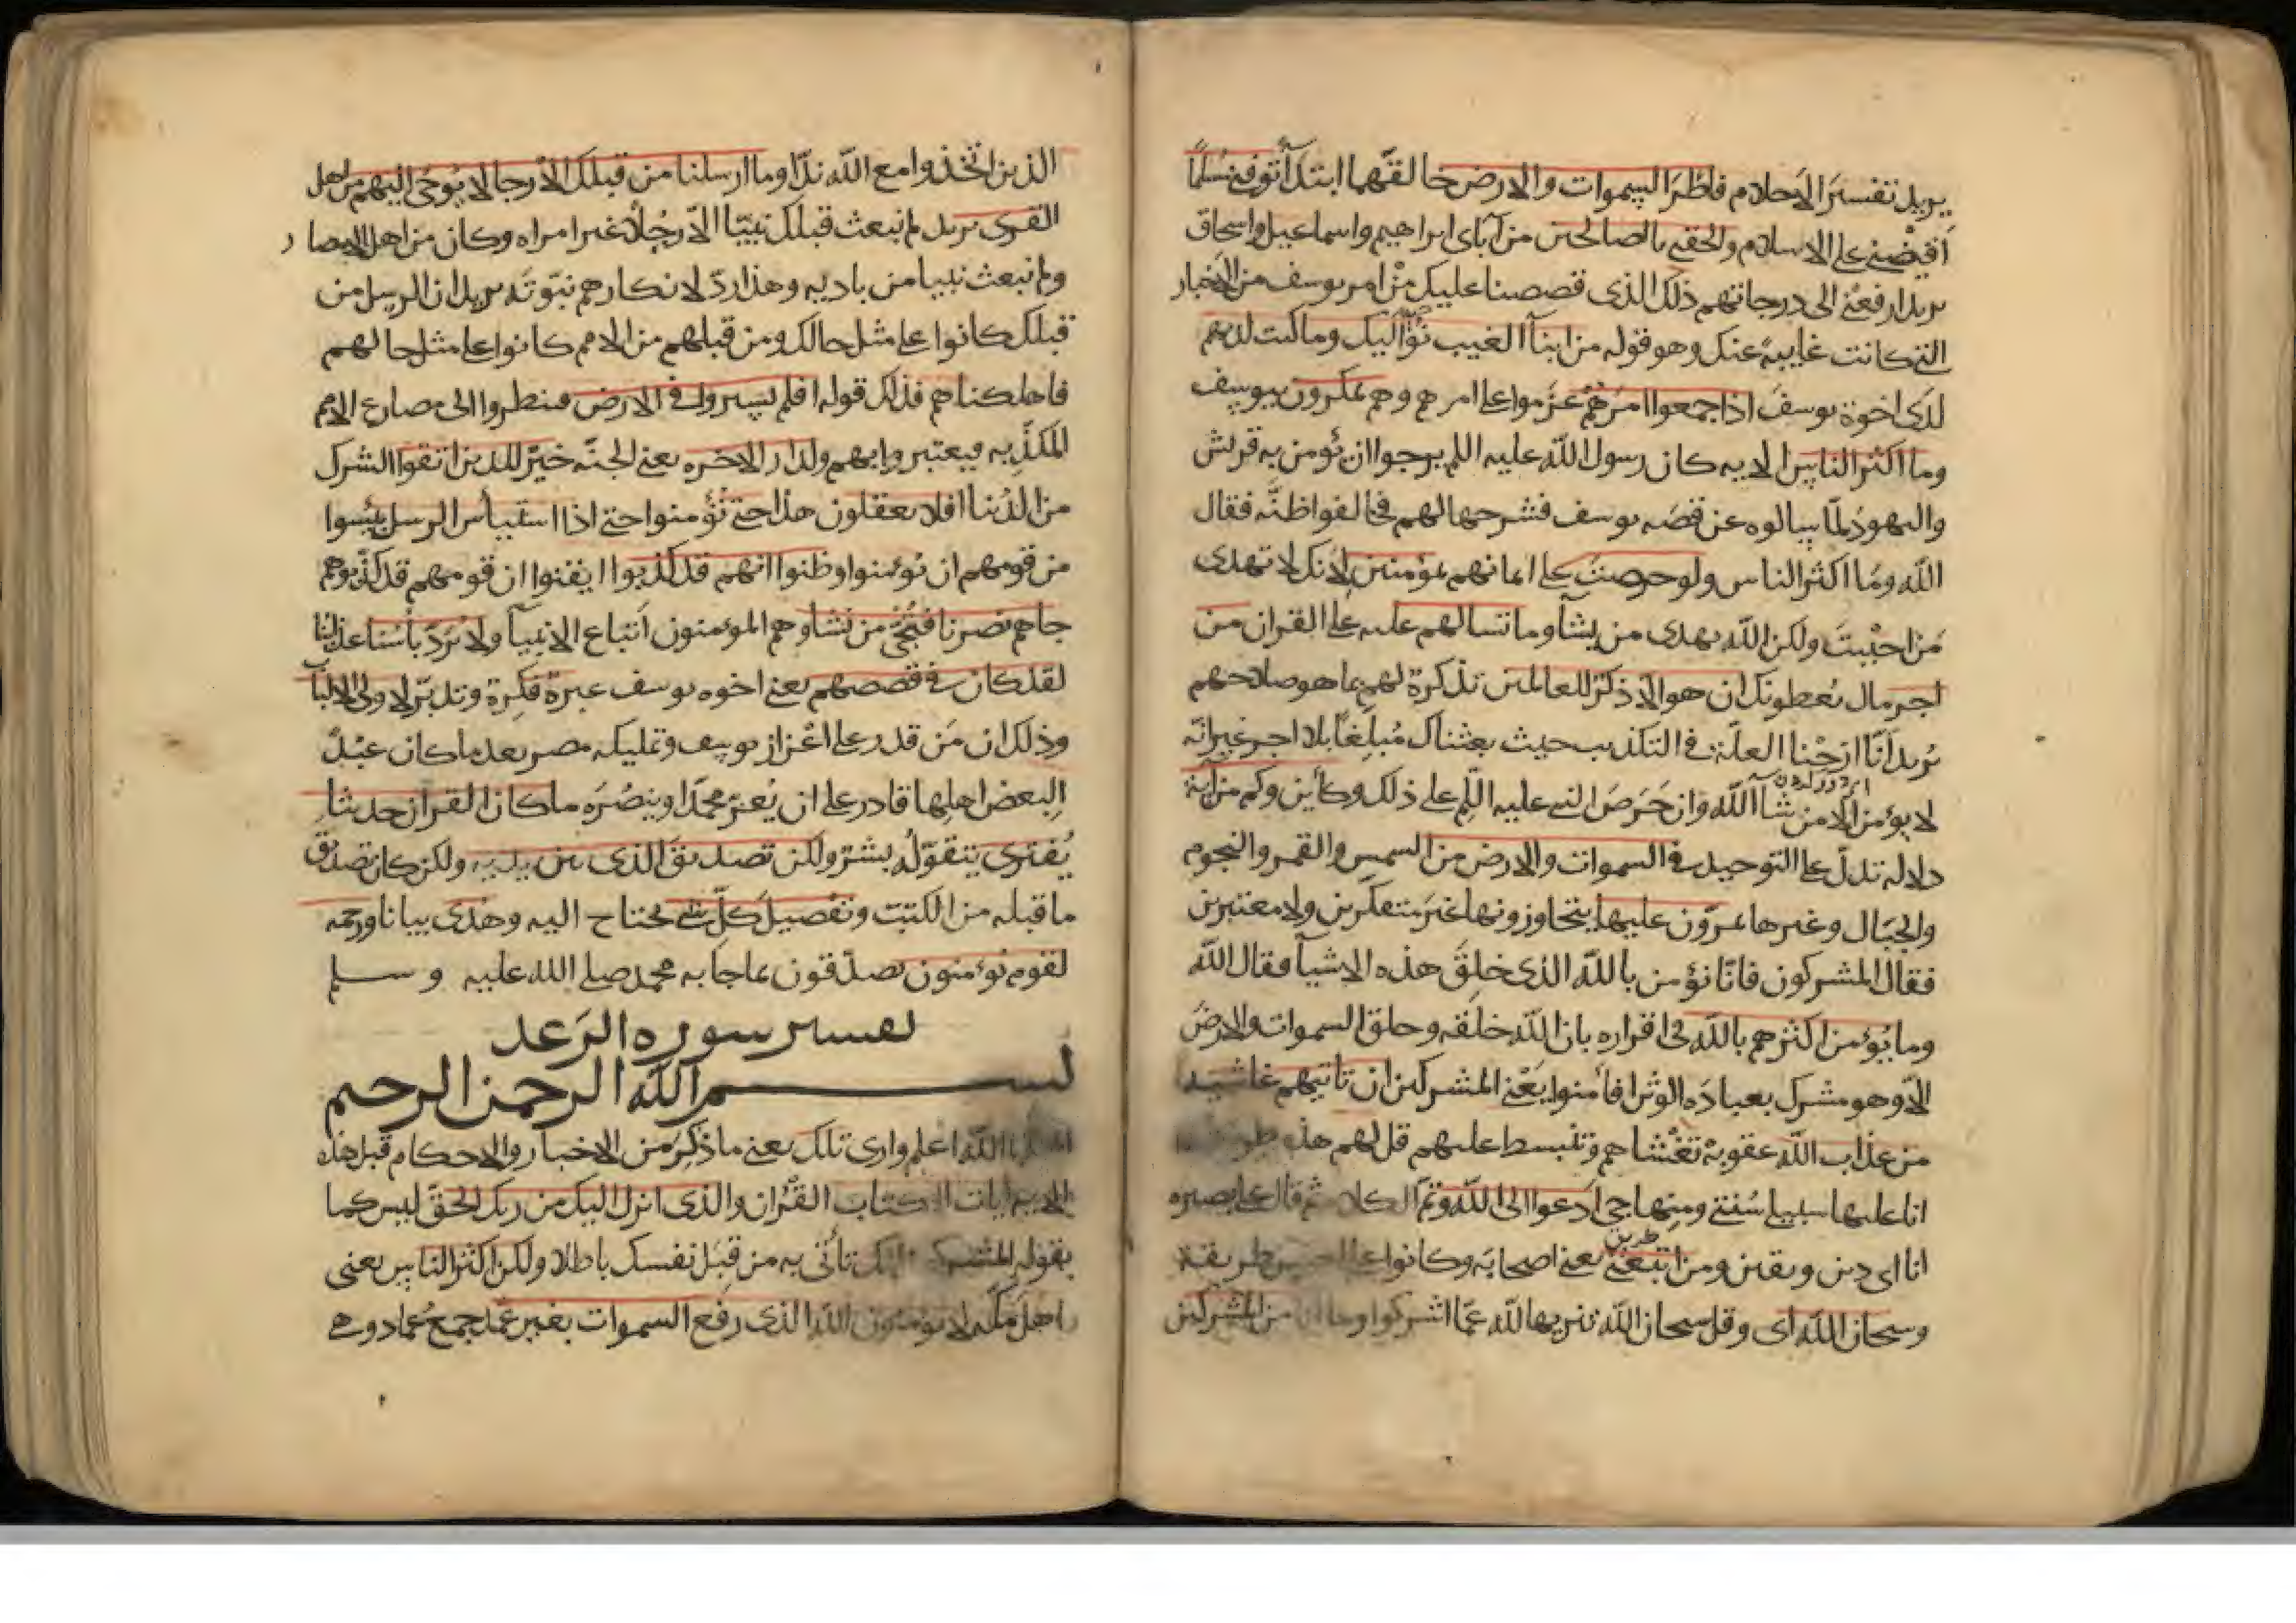 يريد تفسير الاحلام فاطر السموات والارض خالقهما ابتدآ توفني مسلما
اقبضني على الاسلام والحقني بالصالحين من آباى ابراهيم واسماعيل واسحاق
يريد ارفعني الى درجاتهم ذلك الذى قصصنا عليك من امر يوسف من الاخبار
التي كانت غايبة عنك وهو قوله من ابنآ الغيب نوحيه اليك وما كنت لديهم
لدى اخوة يوسف اذا جمعوا امرهم عزموا على امرهم وهم يمكرون بيوسف
وما اكثر الناس الايه كان رسول الله عليه اللم يرجوا ان تؤمن به قريش
واليهود لما سالوه عن قصه يوسف فشرحها لهم فخالفوا ظنه فقال
الله وما اكثر الناس ولو حرصت على ايمانهم بمؤمنين لانك لا تهدى
من احببت ولكن الله يهدى من يشآ وما تسالهم عليه على القران من
اجر مال يعطونك ان هو الا ذكر للعالمين تذكرة لهم بما هو صلاحهم
يريد انا ازحنا العلة في التكذيب حيث بعثناك مبلغا بلا اجر غير انه
لا يؤمن الا من شآ الله وان حرص النبي عليه اللم على ذلك وكأين وكم من اية
دلاله تدل على التوحيد في السموات والارض من الشمس والقمر والنجوم
والجبال وغيرها يمرون عليها يتجاوزونها غير متفكرين ولا معتبرين
فقال المشركون فانا نؤمن بالله الذى خلق هذه الاشيآ فقال الله
وما يؤمن اكثرهم بالله في اقراره بان الله خلقه وخلق السموات والارض
الا وهو مشرك بعباده الوثن افامنوا يعني المشركين ان تاتيهم غاشية
من عذاب الله عقوبة تغشاهم وتنبسط عليهم قل لهم هذه
انا عليها سبيلي سنتي ومنهاجي ادعوا الى الله وتم الكلام ثم قال على بصيره
انا اى دين ويقين ومن اتبعني يعني اصحابه وكانوا على طريقة
وسبحان الله اى وقل سبحان الله تنزيها لله عما اشركوا وما انا من المشركين
الذين اتخذوا مع الله ندا وما ارسلنا من قبلك الا رجالا يوحى اليهم من اهل
القرى يريد لم نبعث قبلك نبيا الا رجلا غير امراه وكان من اهل الامصار
ولم نبعث نبيا من باديه وهذا رد لانكارهم نبوته يريد ان الرسل من
قبلك كانوا على مثل حالك ومن قبلهم من الامم كانوا على مثل حالهم
فاهلكناهم فذلك قوله افلم يسيروا في الارض فينظروا الى مصارع الامم
المكذبه فيعتبروا بهم ولدار الاخره يعني الجنه خير للذين اتقوا الشرك
من الدنيا افلا يعقلون هذا حتى تؤمنوا حتى اذا استيأس الرسل يئسوا
من قومهم ان يومنوا وظنوا انهم قد كذبوا ايقنوا ان قومهم قد كذبوهم
جاهم نصرنا فنجي من نشا وهم المؤمنون اتباع الانبيآ ولا يرد بأسنا عذابنا
لقد كان في قصصهم يعني اخوه يوسف عبرة فكرة وتدبر لاولى الالبآ
وذلك ان من قدر على اعزاز يوسف وتمليكه مصر بعد ما كان عبدا
لبعض اهلها قادر على ان يعز محمدا وينصره ما كان القران حديثا
يفترى يتقوله بشر ولكن تصديق الذى بين يديه ولكن كان تصديق
ما قبله من الكتب وتفصيل كل شي يحتاج اليه وهدى بيانا ورحمه
لقوم يؤمنون يصدقون بما جا به محمد صلى الله عليه وسلم
تفسير سوره الرعد
بسم الله الرحمن الرحيم
انا الله اعلم وارى تلك يعني ما ذكر من الاخبار والاحكام قبل هذه
الايه ايات الكتاب القرآن والذى انزل اليك من ربك الحق ليس كما
يقوله المشركون انك تأتي به من قبل نفسك باطلا ولكن اكثر الناس يعني
اهل مكه لا يؤمنون الله الذى رفع السموات بغير عمد جمع عماد وهي